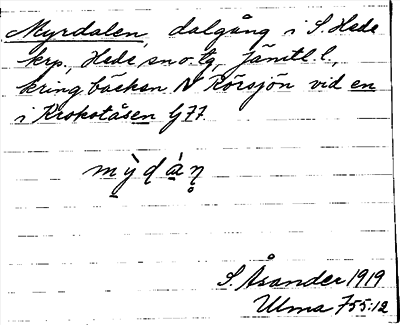 Myrdalen, dalgång i S. Hede
krp., Hede sn o. tg, Jämtl. l.,
kring bäcken N Rörsjön vid en
i Krokotåsen G 77
mỳḍàṇ
S. Åsander 1919
Ulma 755:12